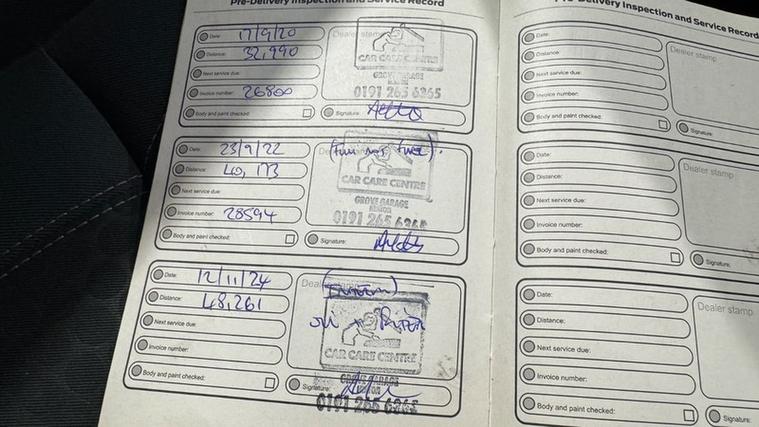 Pre-Delivery Inspection and Service Record
Date: 17/9/20
Distance: 32,990
Next service due:
Invoice number: 26800
Body and paint checked:
Dealer stamp
CAR CARE CENTRE
GROVE GARAGE
0191 265 6265
Signature:
Date: 23/9/22
Distance: 40,173
Next service due:
Invoice number: 28594
Body and paint checked:
CAR CARE CENTRE
GROVE GARAGE
0191 265 6265
Signature:
Date: 12/11/24
Distance: 48,261
Next service due:
Invoice number:
Body and paint checked:
(Interim)
CAR CARE CENTRE
GROVE GARAGE
0191 265 6265
Signature:
Pre-Delivery Inspection and Service Record
Date:
Distance:
Next service due:
Invoice number:
Body and paint checked:
Dealer stamp
Signature:
Date:
Distance:
Next service due:
Invoice number:
Body and paint checked:
Dealer stamp
Signature:
Date:
Distance:
Next service due:
Invoice number:
Body and paint checked:
Dealer stamp
Signature: